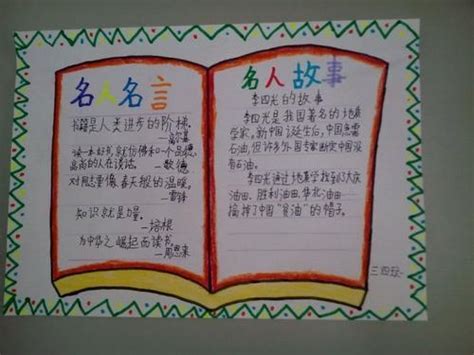 名人名言
书籍是人类进步的阶梯。
—高尔基
读一本好书就仿佛和一个品德
高尚的人在谈话。—歌德
对同志要像春天般的温暖。
—雷锋
知识就是力量。
—培根
为中华之崛起而读书。
—周恩来
名人故事
李四光的故事
李四光是我国著名的地质
学家。新中国诞生后,中国急需
石油,但许多外国专家断定中国没
有石油。
李四光通过地质学找到了大庆
油田、胜利油田、华北油田
摘掉了中国“贫油”的帽子。
三四班